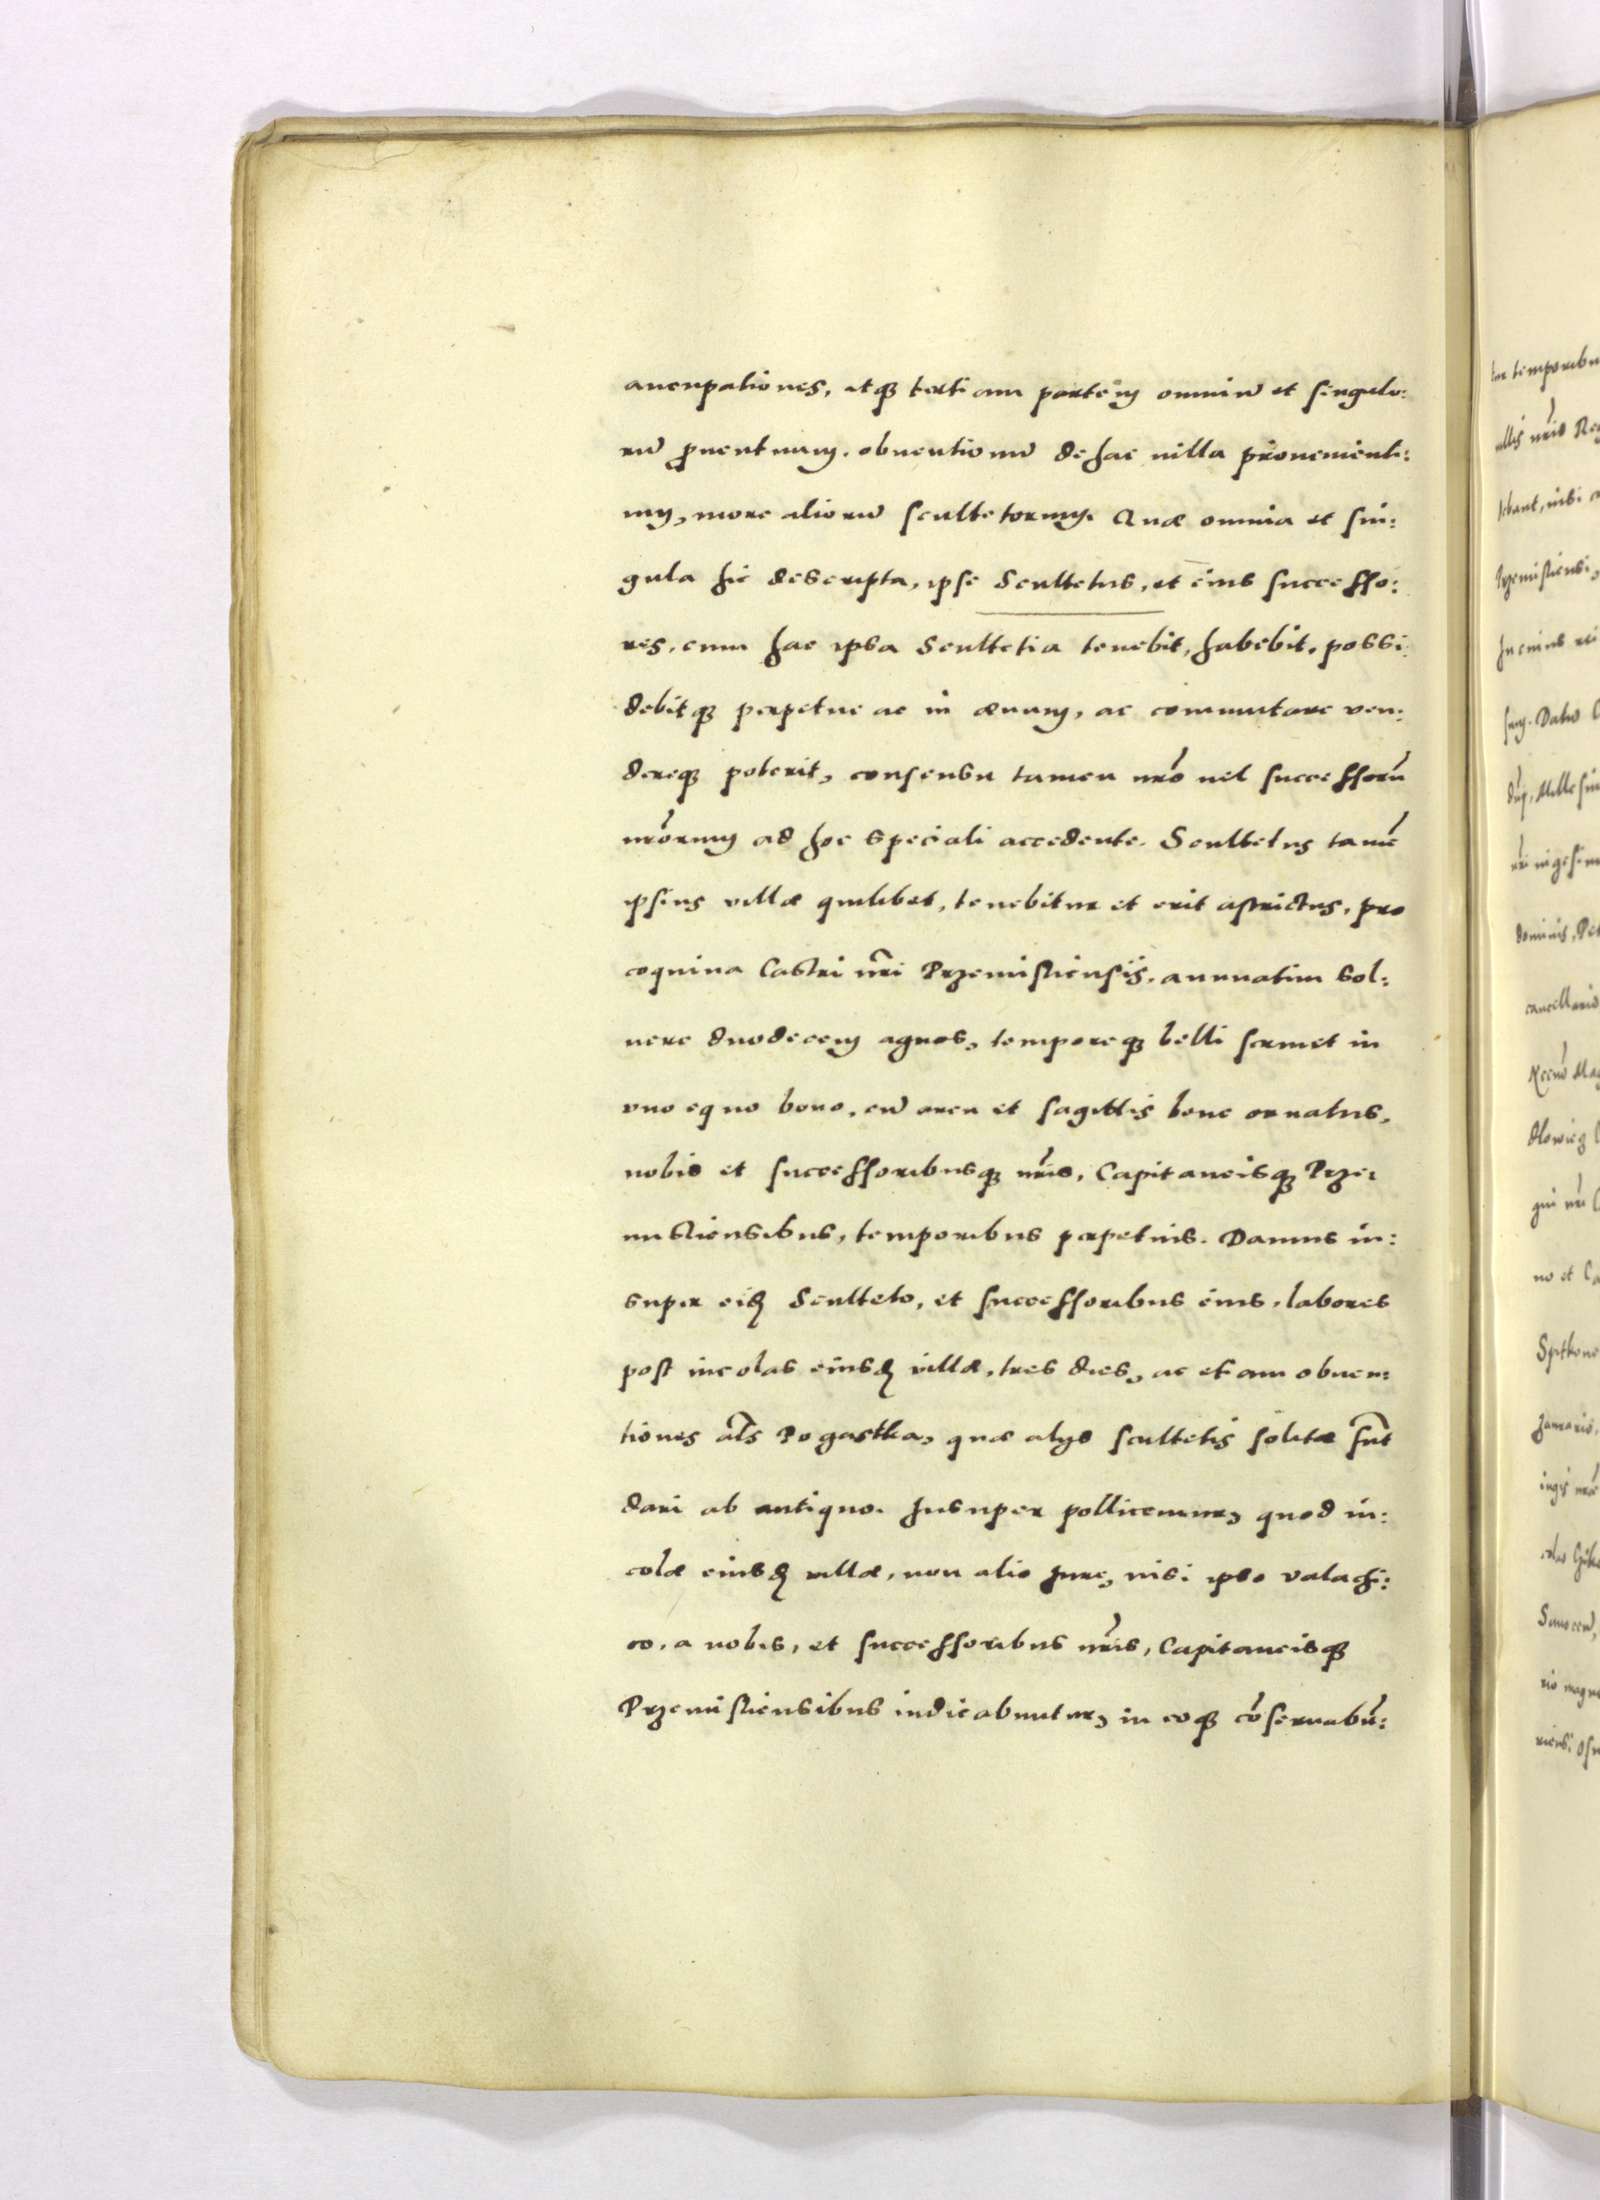 aucupationes, atq; tertiam partem omniū et singulo:
rū prouentuum, obuentionū de hac uilla prouenienti:
um, more aliorū scultetorum. Quæ omnia et sin:
gula hic descripta, ipse Scultetus, et eius successo:
res, cum hac ipsa Scultetia tenebit, habebit, possi:
debitq; perpetue ac in æuum, ac commutare ven:
dereq; poterit, consensu tamen nrō uel successorū
nrōrum ad hoc speciali accedente. Scultetus tamē
ipsius villæ quilibet, tenebitur et erit astrictus, pro
coquina Castri nrī Przemisliensis, annuatim sol:
uere duodecem agnos, temporeq; belli seruiet in
vno equo bono, cū arcu et sagittis bene ornatus,
nobis et successoribusq; nrīs, Capitaneisq; Prze:
misliensibus, temporibus perpetuis. Damus in:
super eidē Sculteto, et successoribus eius, labores
post incolas eiusdē villæ, tres dies, ac etiam obuen:
tiones als̄ Pogastka, quæ alijs scultetis solitæ sūnt
dari ab antiquo. Insuper pollicemur, quod in:
colæ eiusdē villæ, non alio jure, nisi ipso valachi:
co, a nobis, et successoribus nrīs, Capitaneisq;
Przemisliensibus iudicabuntur, in eoq; cōseruabū:
tur temporibu
Przemisliensi,
dominis, Pet
cancellario
no et Ca
Januario,
rio magn